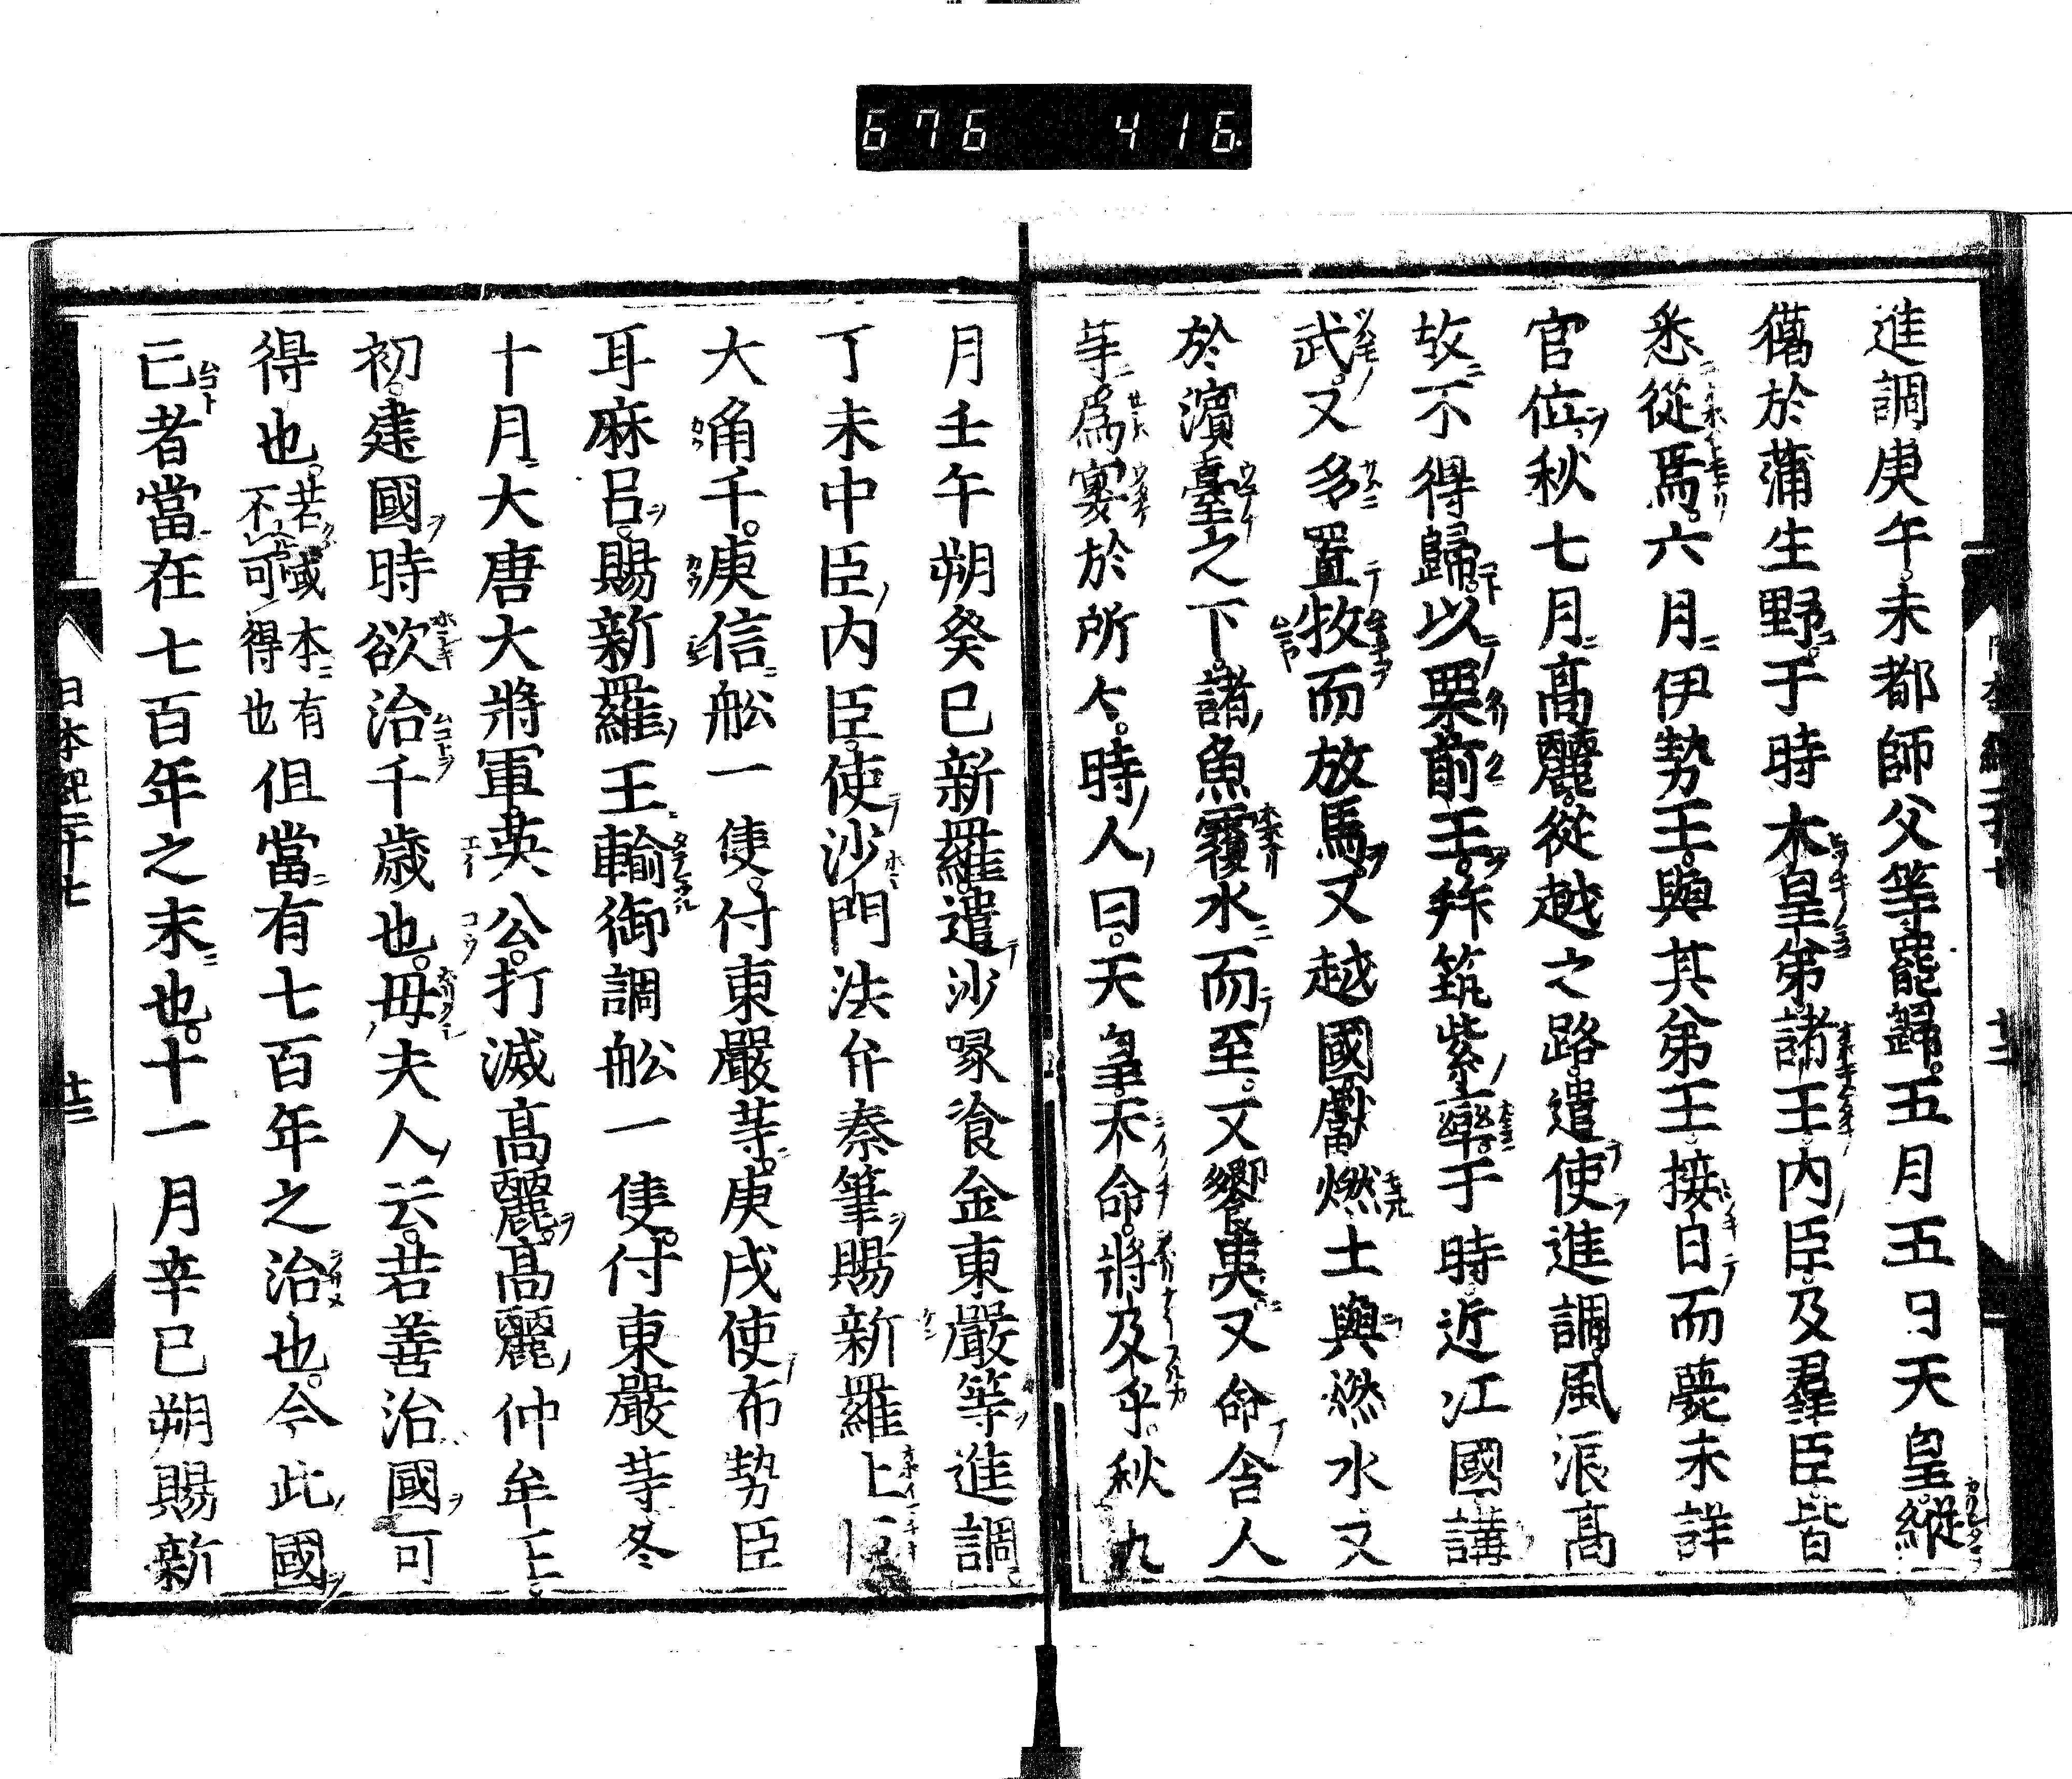 676 416
進調庚午未都師父等罷歸五月五日天皇縱
獦於蒲生野于時大皇弟諸王内臣及羣臣皆
悉從焉六月伊勢王與其弟王接日而薨未詳
官位秋七月髙麗從越之路遣使進調風浪髙
故不得歸以栗前王拜筑紫率于時近江國講
武又多置牧而放馬又越國獻燃土與燃水又
於濱臺之下諸魚覆水而至又饗夷又命舎人
等爲宴於所々時人曰天皇天命將及乎秋九
月壬午朔癸巳新羅遣沙㖨飡金東嚴等進調
丁未中臣内臣使沙門法弁秦筆賜新羅上臣
大角干庾信舩一隻付東嚴等庚戌使布勢臣
耳麻呂賜新羅王輸御調舩一隻付東嚴等冬
十月大唐大將軍英公打滅髙麗髙麗仲牟王
初建國時欲治千歳也母夫人云若善治國可
得也若或本有不可得也但當有七百年之治也今此國
亡者當在七百年之末也十一月辛巳朔賜新
日本紀二十七 十三